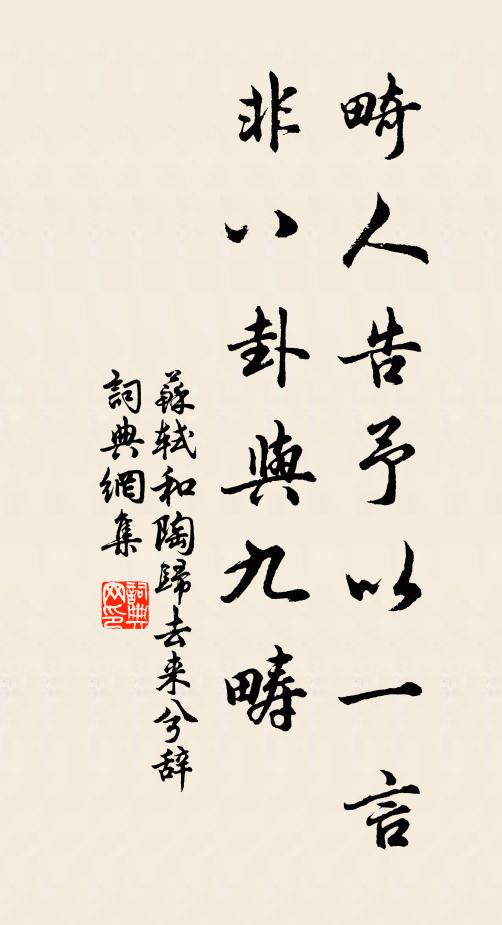 畸人告予以一言
非八卦與九疇
蘇軾和陶歸去来兮辞
詞典網集
詞典网印